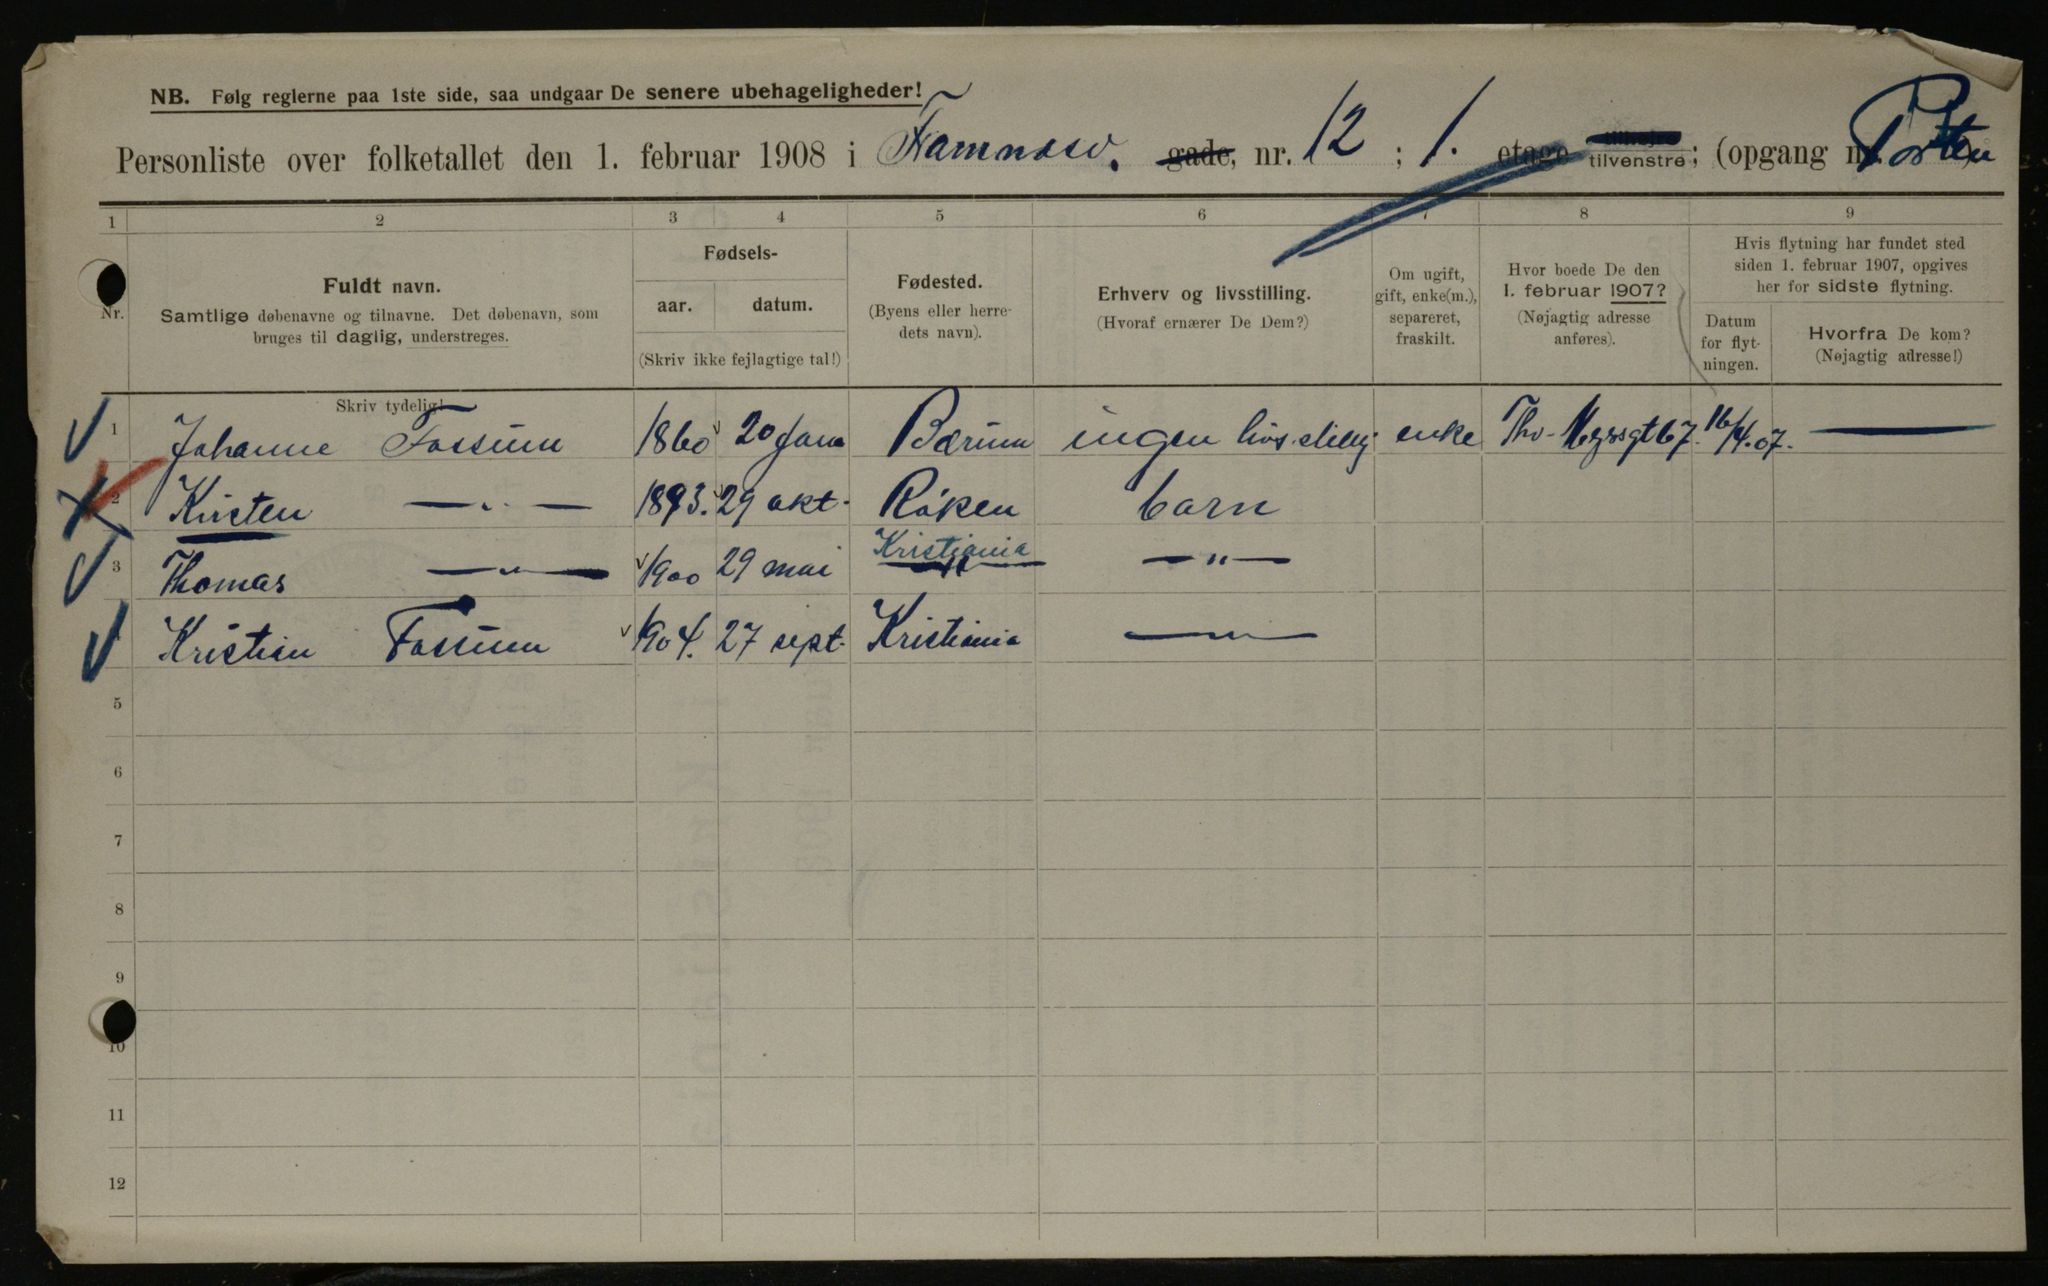 NB. Følg reglerne paa 1ste side, saa undgaar De senere ubehageligheder!
Personliste over folketallet den 1. februar 1908 i gade, nr. 12 ; 1. etage tilvenstre; (opgang nr. Porten
1 2 3 4 5 6 7 8 9
Nr.
Fuldt navn.
Samtlige døbenavne og tilnavne. Det døbenavn, som
bruges til daglig, understreges.
Fødsels-
aar. datum.
(Skriv ikke fejlagtige tal!)
Fødested.
(Byens eller herre-
dets navn).
Erhverv og livsstilling.
(Hvoraf ernærer De Dem?)
Om ugift,
gift, enke(m.),
separeret,
fraskilt.
Hvor boede De den
1. februar 1907?
(Nøjagtig adresse
anføres).
Hvis flytning har fundet sted
siden 1. februar 1907, opgives
her for sidste flytning.
Datum
for flyt-
ningen.
Hvorfra De kom?
(Nøjagtig adresse!)
Skriv tydelig!
1 Johanne Fossum 1860 20 Jan Bærum ingen livs.stillg enke Thv. Meyersgt 67. 16/4.07. —
2 Kirsten —"— 1893. 29 okt. Røken barn
3 Thomas —"— 1900 29 mai Kristiania —"—
4 Kristian Fossum 1904. 27 sept. Kristiania —"—
5
6
7
8
9
10
11
12